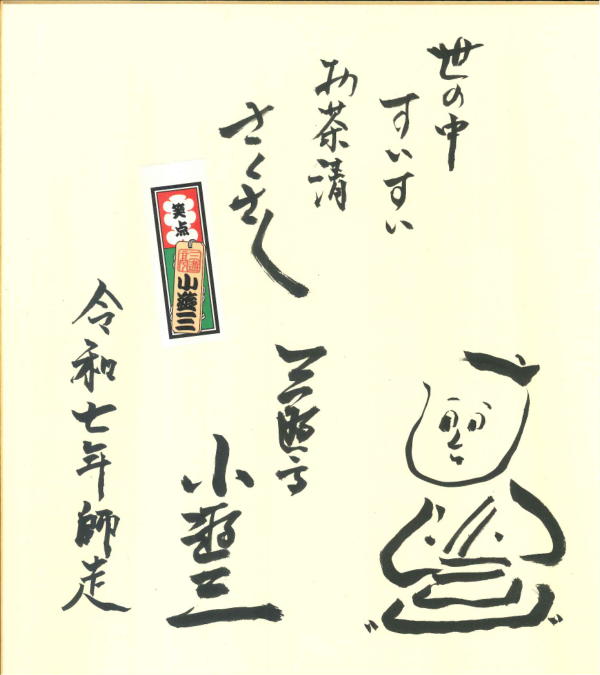 世の中
すいすい
お茶清
さくさく
笑点
小遊三
三遊亭
小遊三
令和七年師走